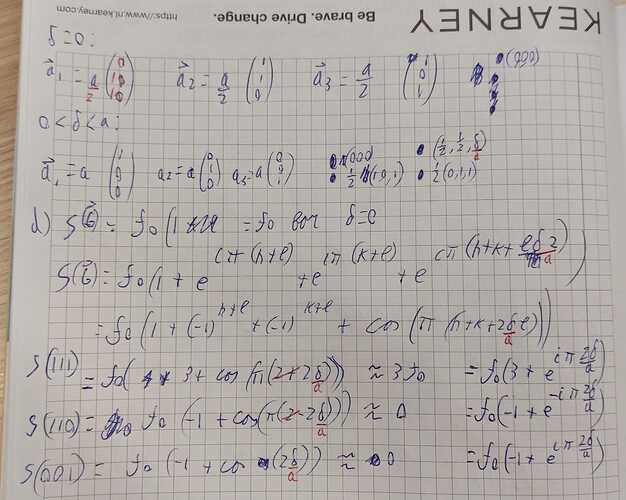 https://www.nl.kearney.com/
Be brave. Drive change.
KEARNEY
δ=0:
a⃗₁ = a/2 (0 1 1) a⃗₂ = a/2 (1 1 0) a⃗₃ = a/2 (1 0 1) • (000)
0 < δ < a:
a⃗₁ = a (1 0 0) a₂ = a (0 1 0) a₃ = a (0 0 1) • (000) • (1/2, 1/2, δ/a)
• 1/2 (1,0,1) • 1/2 (0,1,1)
d) S(G⃗) = f₀(1 = f₀ δ=0
S(G⃗) = f₀(1 + e^{iπ(h+l)} + e^{iπ(k+l)} + e^{iπ(h+k+lδ2/a)})
= f₀(1 + (-1)^{h+l} + (-1)^{k+l} + cos(π(h+k+2δ/a l)))
S(111) = f₀(3 + cos(π(2+2δ/a))) ≈ 3f₀ = f₀(3 + e^{iπ 2δ/a})
S(110) = f₀(-1 + cos(π(2-2δ/a))) ≈ 0 = f₀(-1 + e^{-iπ 2δ/a})
S(001) = f₀(-1 + co (2δ/a)) ≈ 0 = f₀(-1 + e^{iπ 2δ/a})